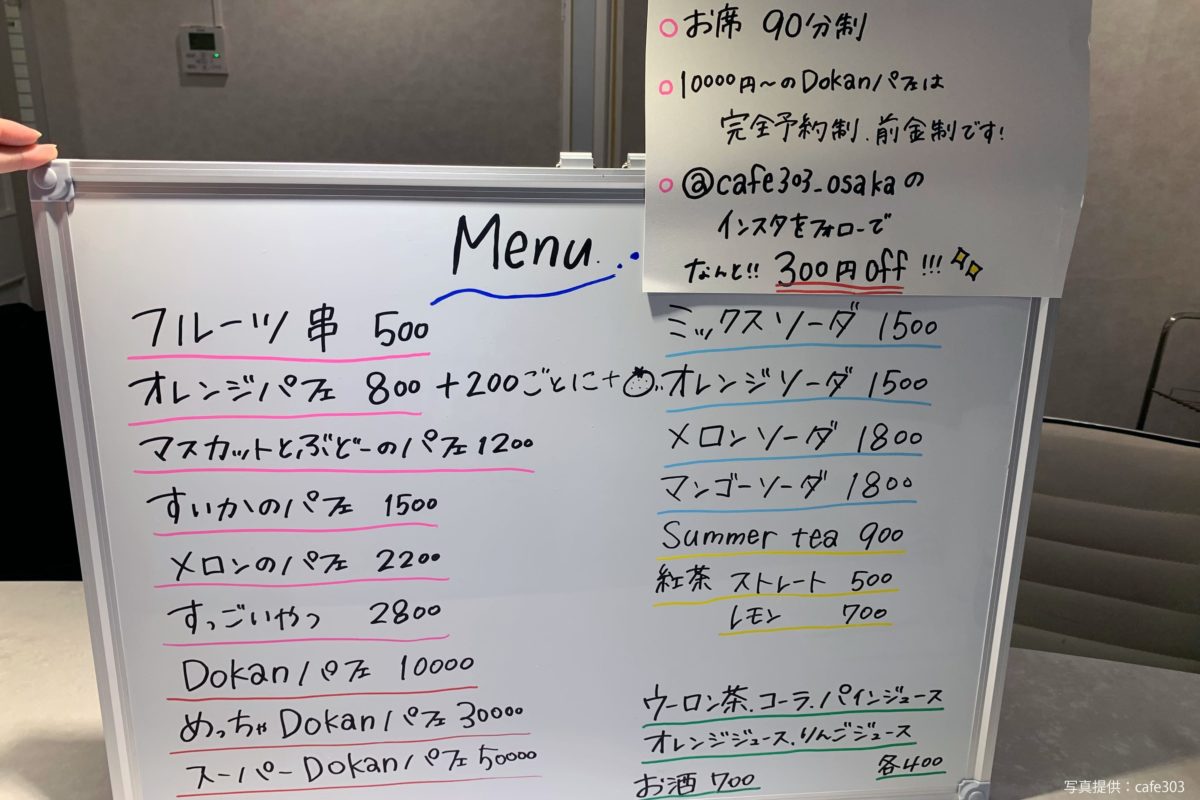 お席 90分制
10000円〜のDokanパフェは
完全予約制、前金制です!
@cafe303_osakaの
インスタをフォローで
なんと!! 300円off !!!
Menu
フルーツ串 500
オレンジパフェ 800 +200ごとに+
マスカットとぶどーのパフェ 1200
すいかのパフェ 1500
メロンのパフェ 2200
すっごいやつ 2800
Dokanパフェ 10000
めっちゃDokanパフェ 30000
スーパーDokanパフェ 50000
ミックスソーダ 1500
オレンジソーダ 1500
メロンソーダ 1800
マンゴーソーダ 1800
Summer tea 900
紅茶 ストレート 500
レモン 700
ウーロン茶、コーラ、パインジュース
オレンジジュース、りんごジュース
各400
お酒 700
写真提供：cafe303